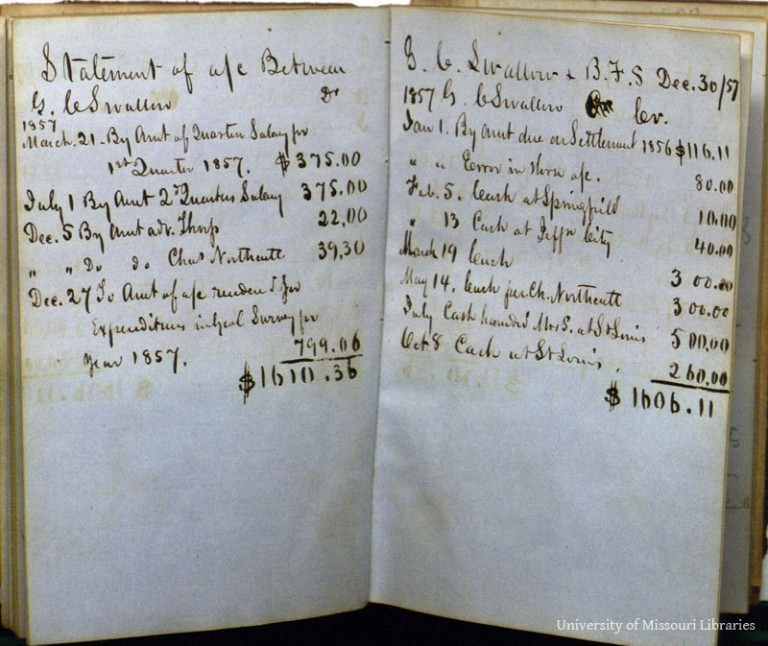 Statement of a/c Between
G. C. Swallow Dr
1857
March. 21 - By Amt of Quarters Salary for
1st Quarter 1857. $375.00
July 1 By Amt 2d Quarters Salary 375.00
Dec. 5 By Amt adv. Thorp 22.00
" " Do do Chas Northcutt 39.30
Dec. 27 To Amt of a/c rendered for
Expenditures in Geol Survey for
Year 1857. 799.06
$1610.36
G. C. Swallow & B. F. S Dec. 30/57
1857 G. C Swallow Cr.
Jan 1. By Amt due on Settlement 1856 $116.11
" " Error in Horse a/c. 80.00
Feb. 5. Cash at Springfield 10.00
" 13 Cash at Jeffn City 40.00
March 19 Cash 300.00
May 14. Cash per Ch. Northcutt 300.00
July Cash handed Mrs S. at St Louis 500.00
Oct 8 Cash at St Louis. 260.00
$1606.11
University of Missouri Libraries